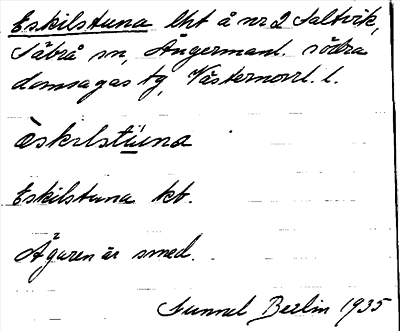 Eskilstuna lht å nr 2 Saltvik,
Säbrå sn, Ångermanl. södra
domsagas tg, Västernorrl. l.
èskɩlstuna
Eskilstuna kb.
Ägaren är smed.
Gunnel Berlin 1935